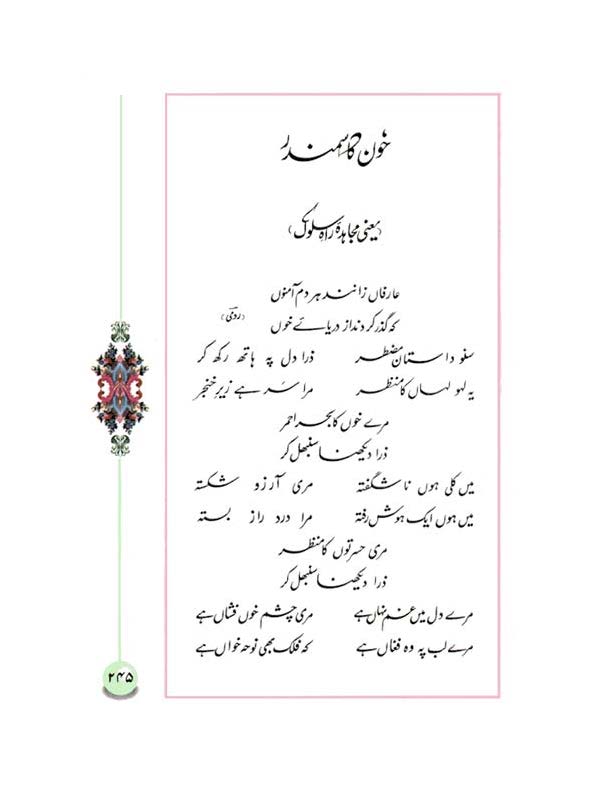 خون کا سمندر
(یعنی مجاہدۂ راہِ سلوک)
عارفاں زانند ہر دم آمنوں
کہ گذر کردند از دریائے خوں (رومیؒ)
سنو داستانِ مضطر ذرا دل پہ ہاتھ رکھ کر
یہ لہو لہاں کا منظر مرا سَر ہے زیرِ خنجر
مرے خوں کا بحرِ احمر
ذرا دیکھنا سنبھل کر
میں کلی ہوں ناشگفتہ مری آرزو شکستہ
میں ہوں ایک ہوش رفتہ مرا درد راز بستہ
مری حسرتوں کا منظر
ذرا دیکھنا سنبھل کر
مرے دل میں غم نہاں ہے مری چشم خوں فشاں ہے
مرے لب پہ وہ فغاں ہے کہ فلک بھی نوحہ خواں ہے
۲۴۵